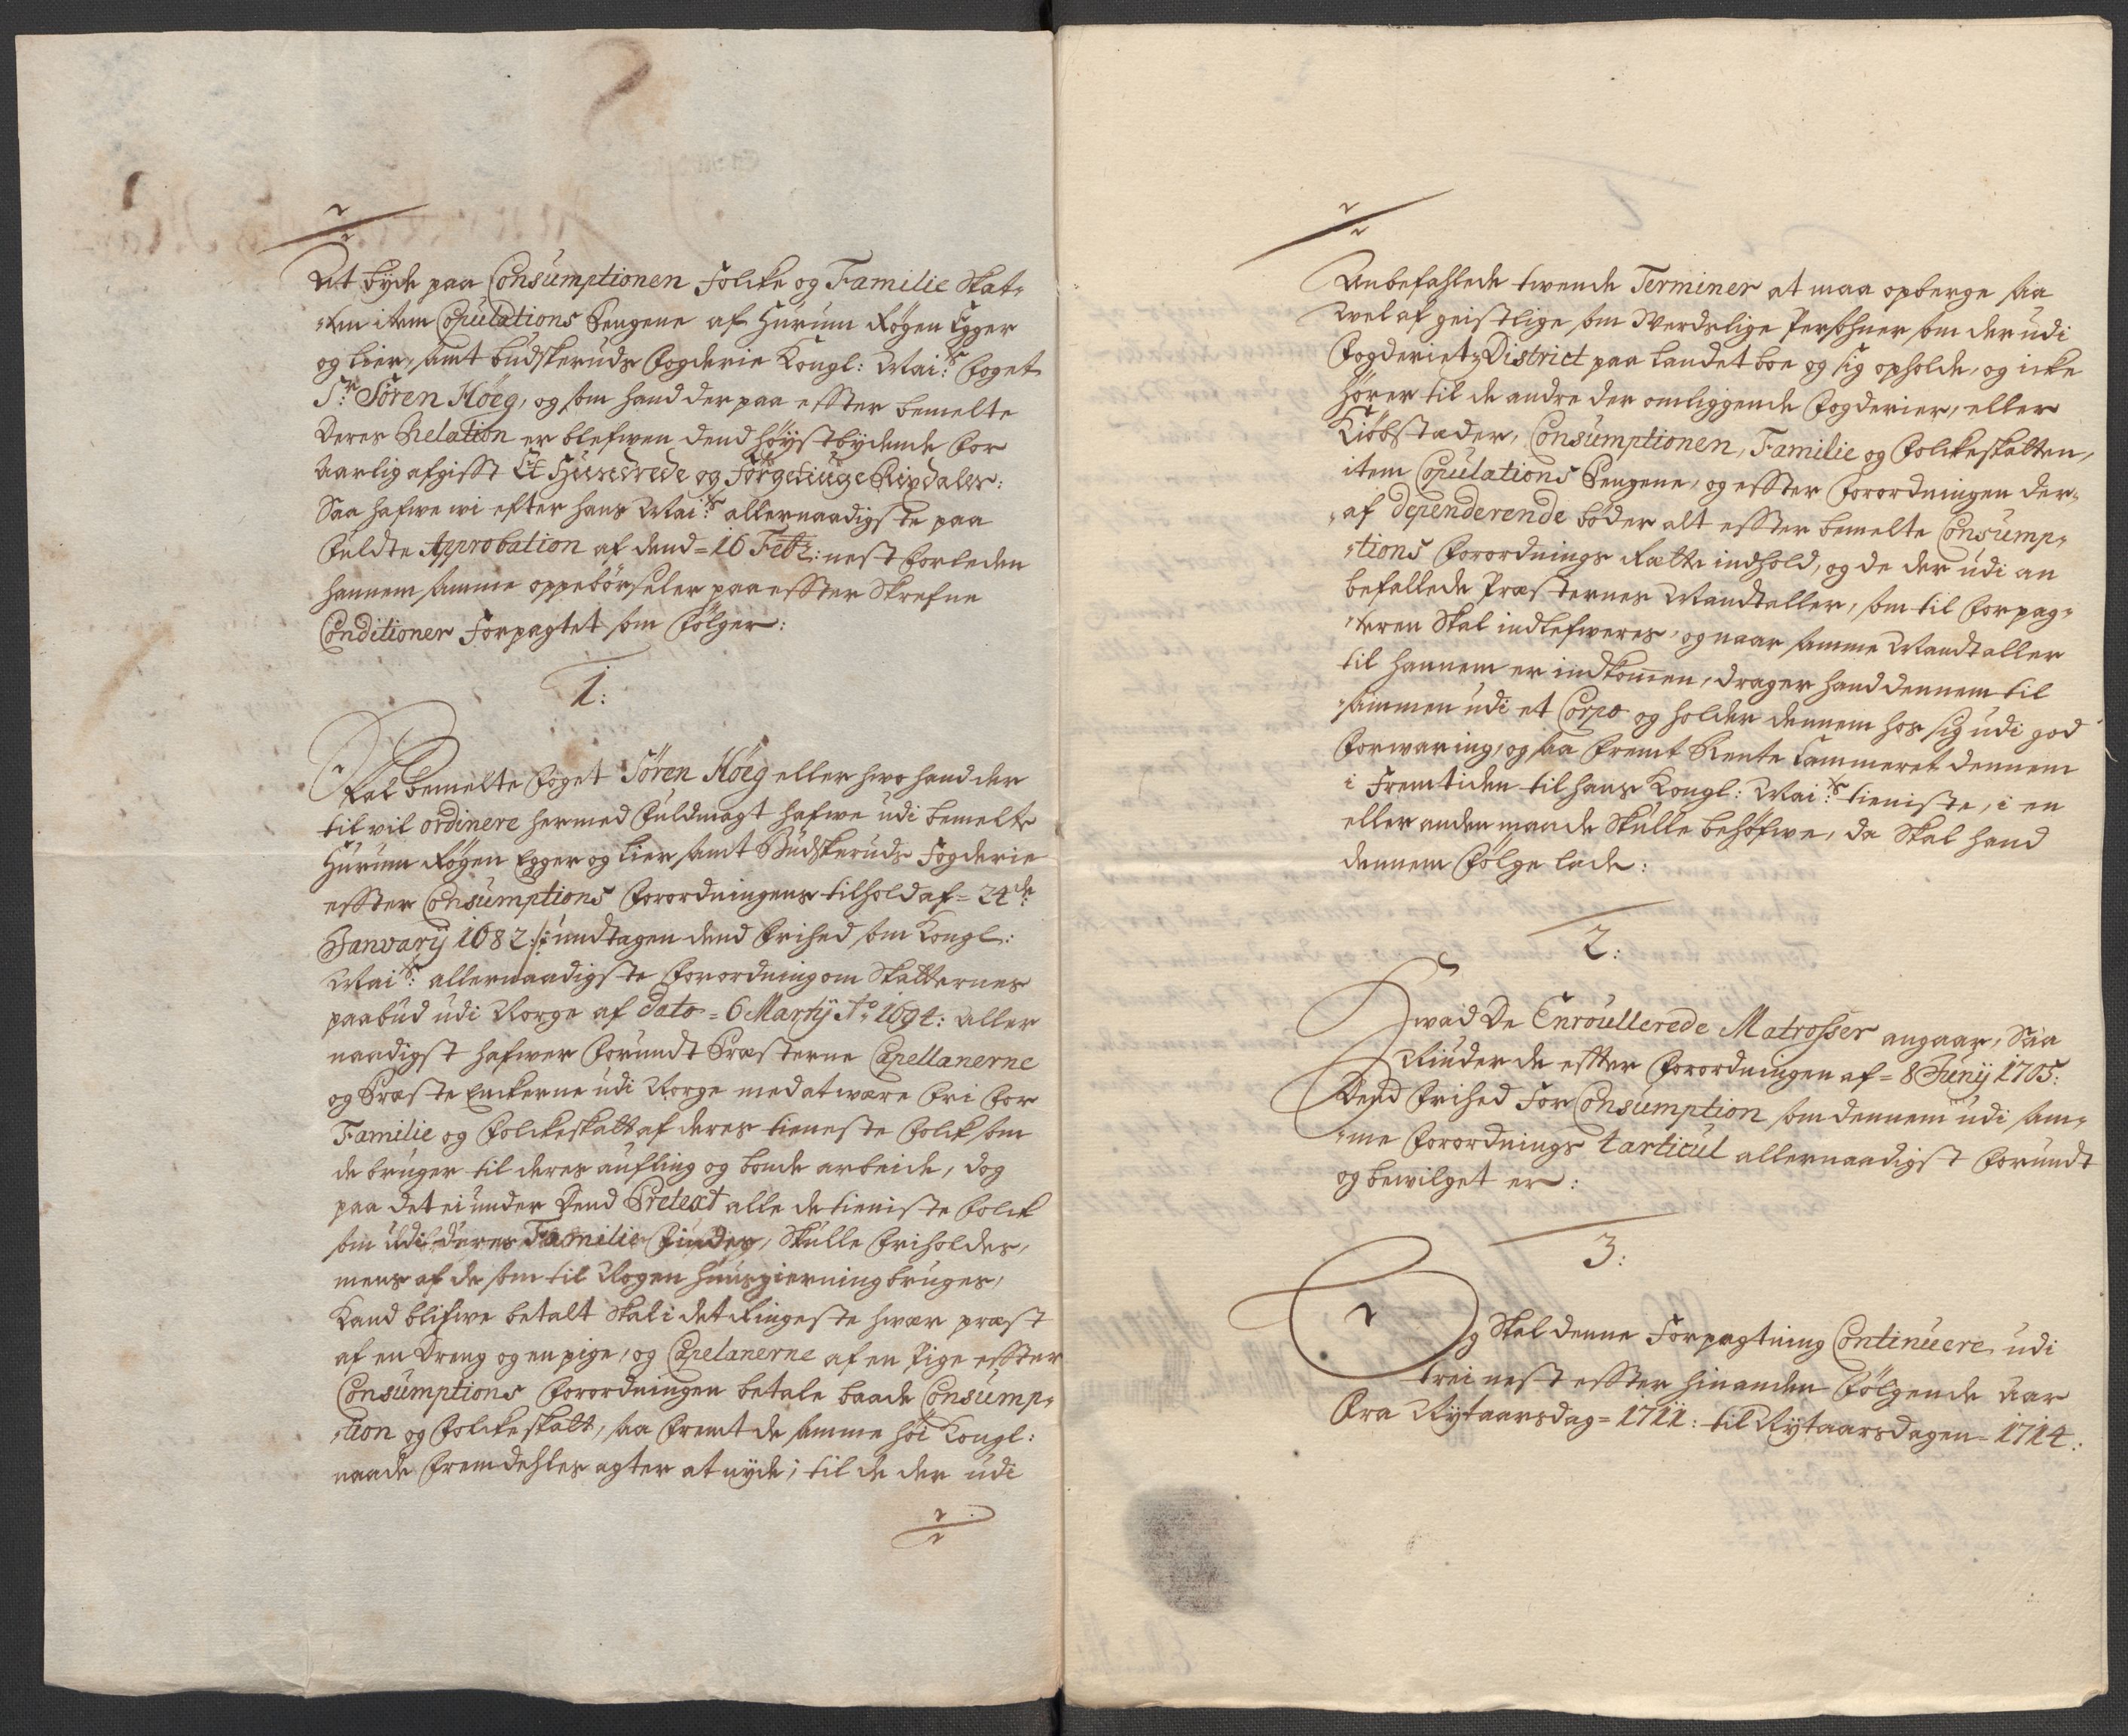 At byde paa Consumptionen Folcke og Familie Skat-
ten item Copulations Pengene af Hurum Røgen Egger
og Lier, samt Budskeruds Fogderie Kongl: Mai:ts Foget
Sr. Søren Høeg, og som hand der paa effter bemelte
Deres Relation er blefwen dend høystbydende for
Aarlig afgifft Et Hundrede og Førgetiuge Rixdaler:
Saa hafwe wi efter hans Mai:ts allernaadigste paa
fuldte Approbation af dend = 16 Febr: nest forleden
hannem samme oppebørseler paa effter Skrefne
Conditioner Forpagtet som følger:
1:
Skal bemelte Foget Søren Høeg eller hwo hand der
til vil ordinere hermed fuldmagt hafwe udi bemelte
Hurum Røgen Egger og Lier samt Budskeruds Fogderie
effter Consumptions Forordningens tilhold af = 24de
January 1682 :/: undtagen dend frihed som Kongl:
Mai:ts allernaadigste Forordning om Skatternes
paabud udi Norge af dato = 6 Martij Ao 1694: aller
naadigst hafwer forundt Præsterne Capellanerne
og Præste Enckerne udi Norge med at wære fri for
Familie og Folckeskatt af deres tieneste folck som
de bruger til deres aufling og bonde arbeide, dog
paa det ei under dend Pretext alle de tieniste folck
som udi deres Familie findes, Skulle friholdes,
mens af de som til Nogen huusgierning bruges,
kand blifwe betalt Skal i det Ringeste hwær præst
af en Dreng og en pige, og Capelanerne af en Pige effter
Consumptions Forordningen betale baade Consump-
tion og Folckeskatt, saa fremt de samme høi Kongl:
naade fremdehles agter at nyde; til de der udi
Anbefahlede twende Terminer at maa opberge saa
wel af geistlige som Werdslige Persohner som der udi
Fogderiets District paa Landet boe og sig opholde, og icke
hører til de andre der omliggende Fogderier, eller
Kiøbstæder, Consumptionen, Familie og Folckeskatten,
item Copulations Pengene, og effter Forordningen der-
af dependerende bøder alt effter bemelte Consump-
tions Forordnings Rætte indhold, og de der udi an
befallede Præsternes Mandtaller, som til Forpag-
teren Skal indlefweres, og naar samme Mandtaller
til hannem er indkommen, drager hand dennem til
sammen udi et Corpo og holder dennem hos sig udi god
Forwaring, og saa fremt Rente Cammeret dennem
i Fremtiden til hans Kongl: Mai:ts tieniste, i en
eller anden maade Skulle behøfwe, da Skal hand
dennem følge lade:
2:
Hwad De Enroullerede Matrosser angaar, Saa
Niuder de effter Forordningen af = 8 Junij 1705:
Dend Frihed For Consumption som dennem udi sam-
me Forordnings 1 articul allernaadigst forundt
og bewilget er:
3:
Og Skal denne Forpagtning Continuere udi
trei nest effter hinanden følgende Aar
Fra Nytaarsdag = 1711: til Nytaarsdagen = 1714: